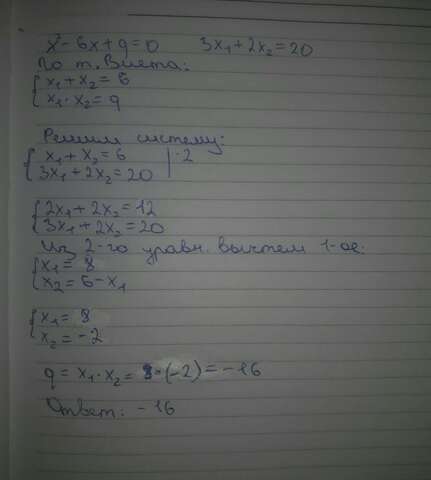 x² - 6x + q = 0    3x₁ + 2x₂ = 20
По т. Виета:
{ x₁ + x₂ = 6
{ x₁ · x₂ = q
Решим систему:
{ x₁ + x₂ = 6 | · 2
{ 3x₁ + 2x₂ = 20
{ 2x₁ + 2x₂ = 12
{ 3x₁ + 2x₂ = 20
Из 2-го уравн. вычтем 1-ое:
{ x₁ = 8
{ x₂ = 6 - x₁
{ x₁ = 8
{ x₂ = -2
q = x₁ · x₂ = 8 · (-2) = -16
Ответ: -16